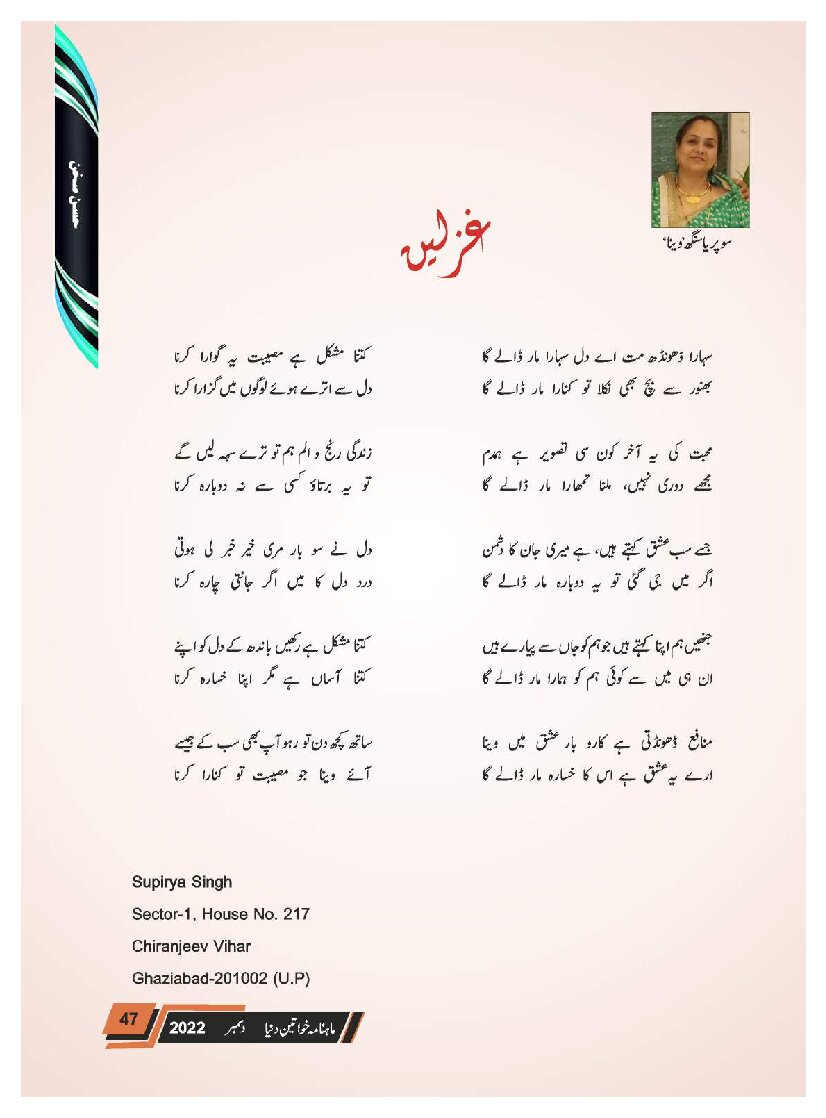 حسن سخن
سوپریا سنگھ 'وینا'
غزلیں
سہارا ڈھونڈھ مت اے دل سہارا مار ڈالے گا
بھنور سے بچ بھی نکلا تو کنارا مار ڈالے گا
محبت کی یہ آخر کون سی تصویر ہے ہمدم
مجھے دوری نہیں، ملنا تمھارا مار ڈالے گا
جسے سب عشق کہتے ہیں، ہے میری جان کا دشمن
اگر میں جی گئی تو یہ دوبارہ مار ڈالے گا
جنھیں ہم اپنا کہتے ہیں جو ہم کو جاں سے پیارے ہیں
ان ہی میں سے کوئی ہم کو ہمارا مار ڈالے گا
منافع ڈھونڈتی ہے کارو بار عشق میں وینا
ارے یہ عشق ہے اس کا خسارہ مار ڈالے گا
کتنا مشکل ہے مصیبت یہ گوارا کرنا
دل سے اترے ہوئے لوگوں میں گزارا کرنا
زندگی رنج و الم ہم تو ترے سہہ لیں گے
تو یہ برتاؤ کسی سے نہ دوبارہ کرنا
دل نے سو بار مری خیر خبر لی ہوتی
درد دل کا میں اگر جانتی چارہ کرنا
کتنا مشکل ہے رکھیں باندھ کے دل کو اپنے
کتنا آساں ہے مگر اپنا خسارہ کرنا
ساتھ کچھ دن تو رہو آپ بھی سب کے جیسے
آئے وینا جو مصیبت تو کنارا کرنا
Supirya Singh
Sector-1, House No. 217
Chiranjeev Vihar
Ghaziabad-201002 (U.P)
ماہنامہ خواتین دنیا دسمبر 2022 47